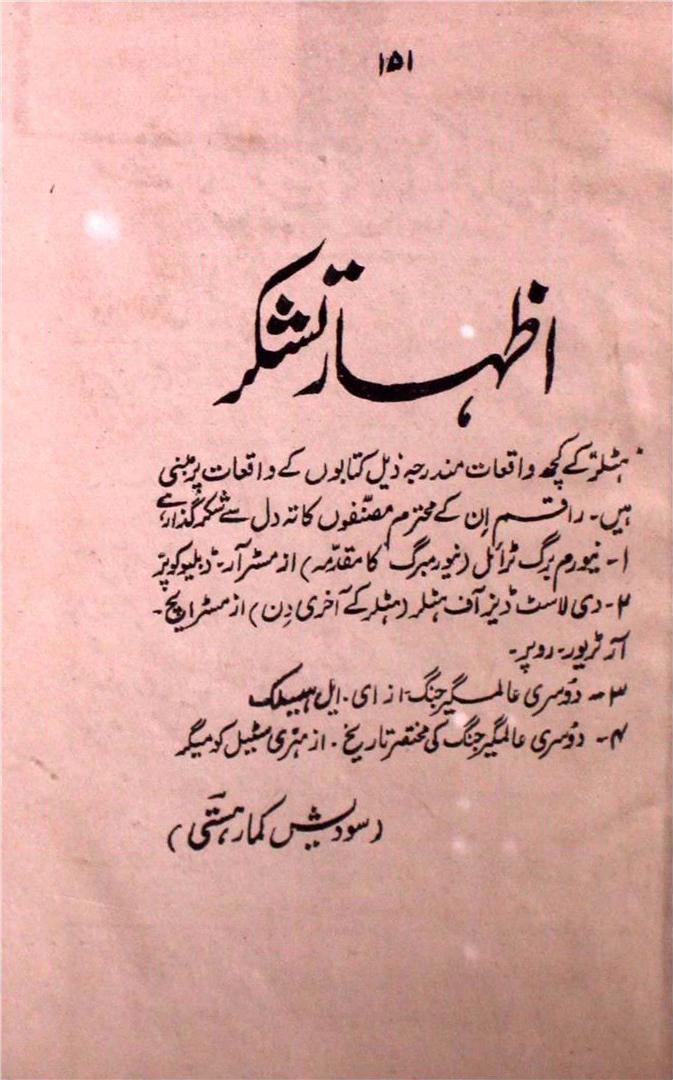 ۱۵۱
اظہار تشکر
ہٹلر کے کچھ واقعات مندرجہ ذیل کتابوں کے واقعات پر مبنی
ہیں۔ راقم اِن کے محترم مصنّفوں کا تہ دل سے شکر گذار ہے
۱۔ نیورم برگ ٹرائل (نیورمبرگ کا مقدمہ) از مسٹر آر۔ ڈبلیو کوپر
۲۔ دی لاسٹ ڈیز آف ہٹلر (ہٹلر کے آخری دِن) از مسٹر ایچ۔
آر ٹریور۔ روپر۔
۳۔ دُوسری عالمگیر جنگ۔ از ای۔ ایل
۴۔ دُوسری عالمگیر جنگ کی مختصر تاریخ۔ از ہنری سٹیل کومیگر
(سودیش کمار ہستی)